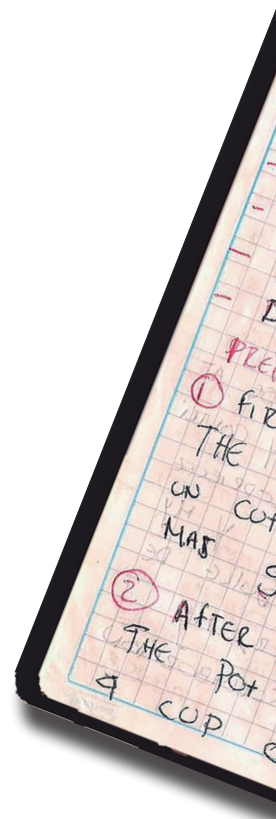 -
-
-
-
PREP
① FIR
THE
UN CUT
MAS S
② AFTER
THE POT
A CUP